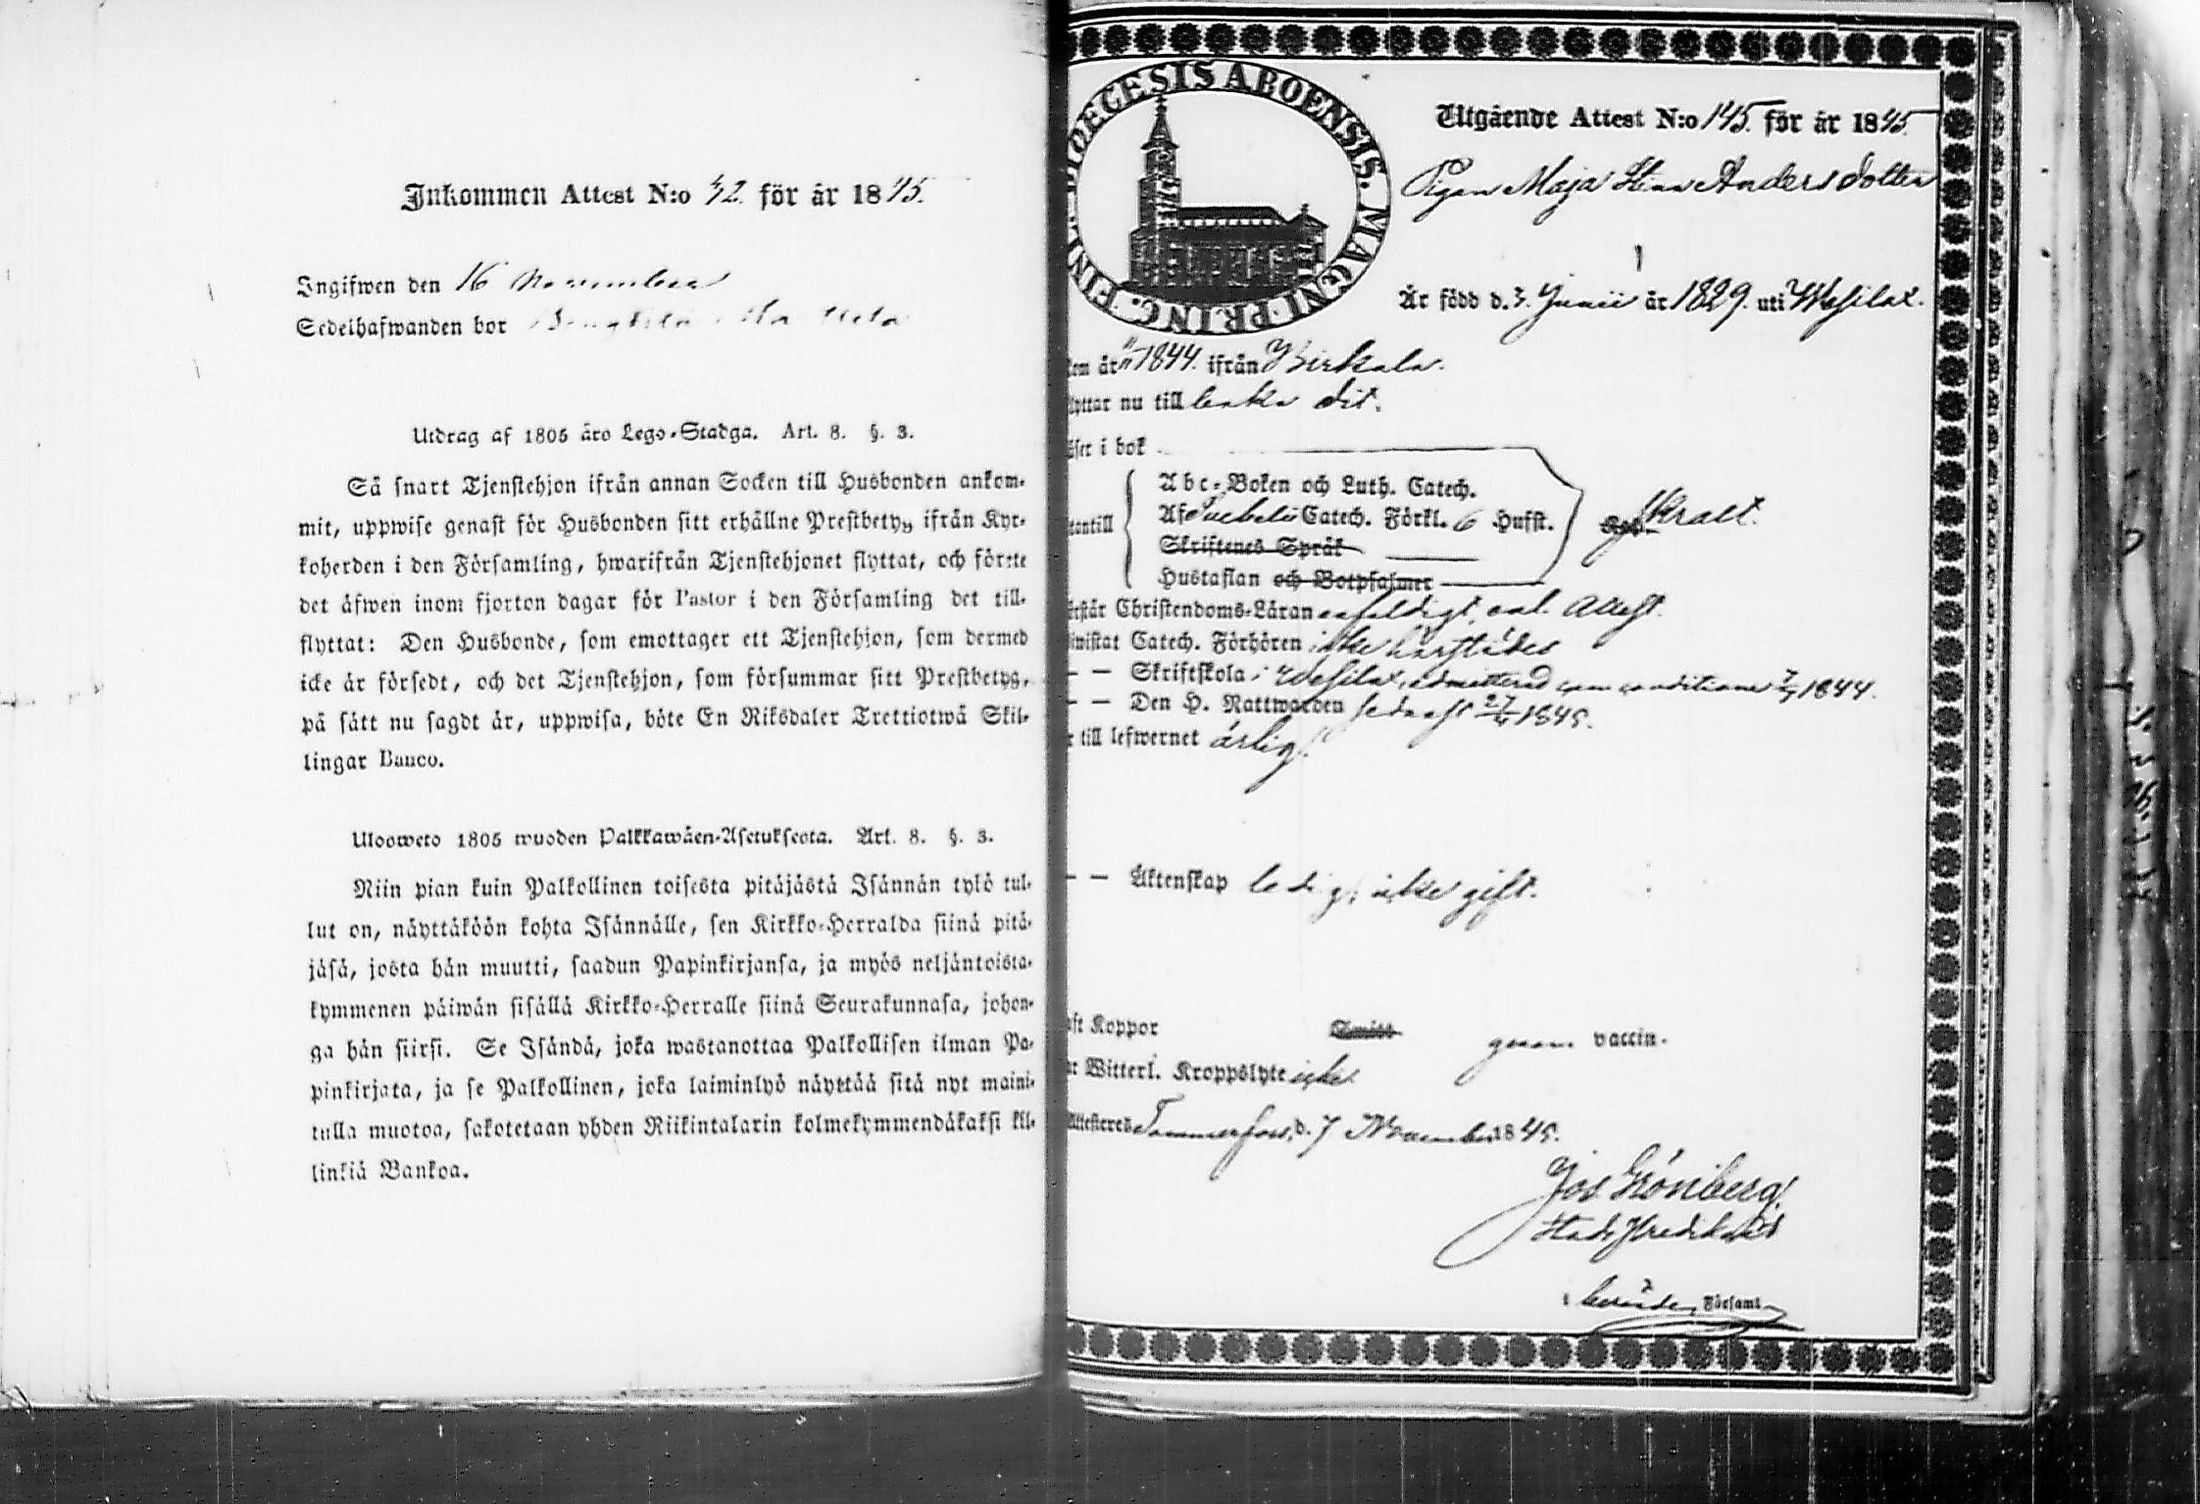 Inkommen Attest N:o 42. för år 1845.
Ingifwen den 16 November
Sedelhafwanden bor
Utdrag af 1805 års Lego-Stadga. Art. 8. §. 3.
Så snart Tjenstehjon ifrån annan Socken till Husbonden ankom-
mit, uppwise genast för Husbonden sitt erhållne Prestbetyg ifrån Kyr-
koherden i den Församling, hwarifrån Tjenstehjonet flyttat, och förete
det äfwen inom fjorton dagar för Pastor i den Församling det till-
flyttat: Den Husbonde, som emottager ett Tjenstehjon, som dermed
icke är försedt, och det Tjenstehjon, som försummar sitt Prestbetyg,
på sätt nu sagdt är, uppwisa, böte En Riksdaler Trettiotwå Skil-
lingar Banco.
Ulosweto 1805 wuoden Palkkawäen-Asetuksesta. Art. 8. §. 3.
Niin pian kuin Palkollinen toisesta pitäjästä Isännän tykö tul-
lut on, näyttäköön kohta Isännälle, sen Kirkko-Herralda siinä pitä-
jäsä, josta hän muutti, saadun Papinkirjansa, ja myös neljäntoista-
kymmenen päiwän sisällä Kirkko-Herralle siinä Seurakunnasa, johon-
ga hän siirsi. Se Isändä, joka wastanottaa Palkollisen ilman Pa-
pinkirjata, ja se Palkollinen, joka laiminlyö näyttää sitä nyt maini-
tulla muotoa, sakotetaan yhden Riikintalarin kolmekymmendäkaksi kil-
linkiä Bankoa.
DIOECESIS ABOENSIS. MAGNI PRINC. FINL.
Utgående Attest N:o 145. för år 1845
Pigan Maja Stina Anders dotter
Är född d. 3. Junii år 1829. uti Wesilax.
kom år 1844. ifrån Birkala.
flyttar nu till baka dit.
läser i bok
Abc-Boken och Luth. Catech.
Af Swebelii Catech. Förkl. 6 Hufst.
Skriftenes Språk
utantill
Hustaflan och Botpsalmer
svagt.
förstår Christendoms-Läran enfaldigt, enl. Attest.
bewistat Catech. Förhören icke härstädes
— — Skriftskola i Wesilax, admitterad 1844.
— — Den H. Nattwarden sednast 1845.
är till lefwernet ärlig.
— — Äktenskap ledig, icke gift.
haft Koppor Smitt genom vaccin.
har Witterl. Kroppslyte icke.
Attesteres Tammerfors, d. 7 November 1845.
Jos. Grönberg
Stads Predikant
Församl.